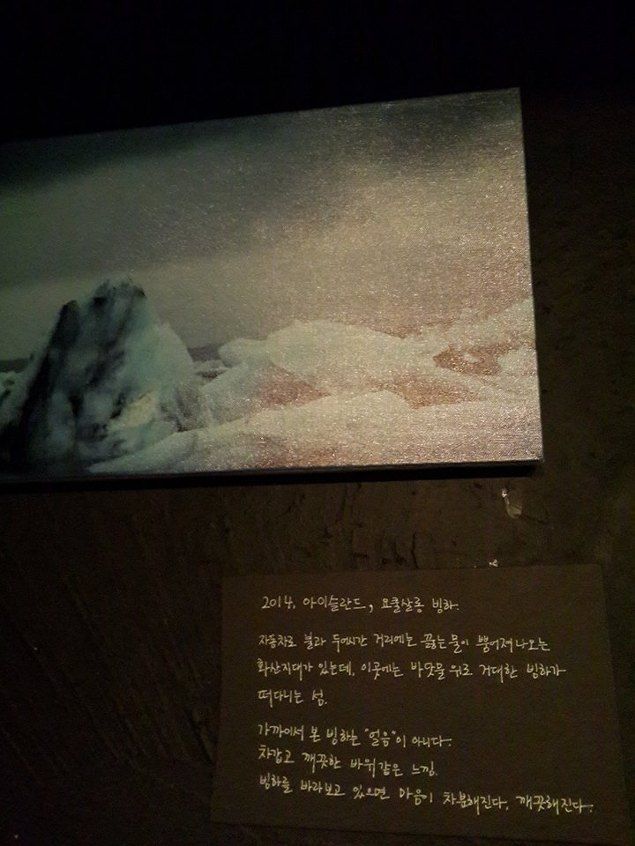 2014, 아이슬란드, 요쿨살롱 빙하.
자동차로 불과 두어시간 거리에는 끓는 물이 뿜어져 나오는
화산지대가 있는데, 이곳에는 바닷물 위로 거대한 빙하가
떠다니는 섬.
가까이서 본 빙하는 "얼음"이 아니다.
차갑고 깨끗한 바위같은 느낌.
빙하를 바라보고 있으면 마음이 차분해진다, 깨끗해진다.